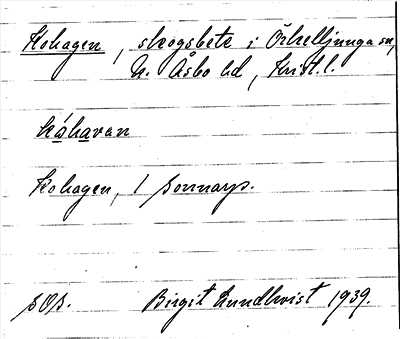 Kohagen, skogsbete i Örkelljunga sn,
N. Åsbo hd, Krist. l.
kåhavan
Kohagen, 1 Sonnarp.
sOs. Birgit Lundkvist 1939.